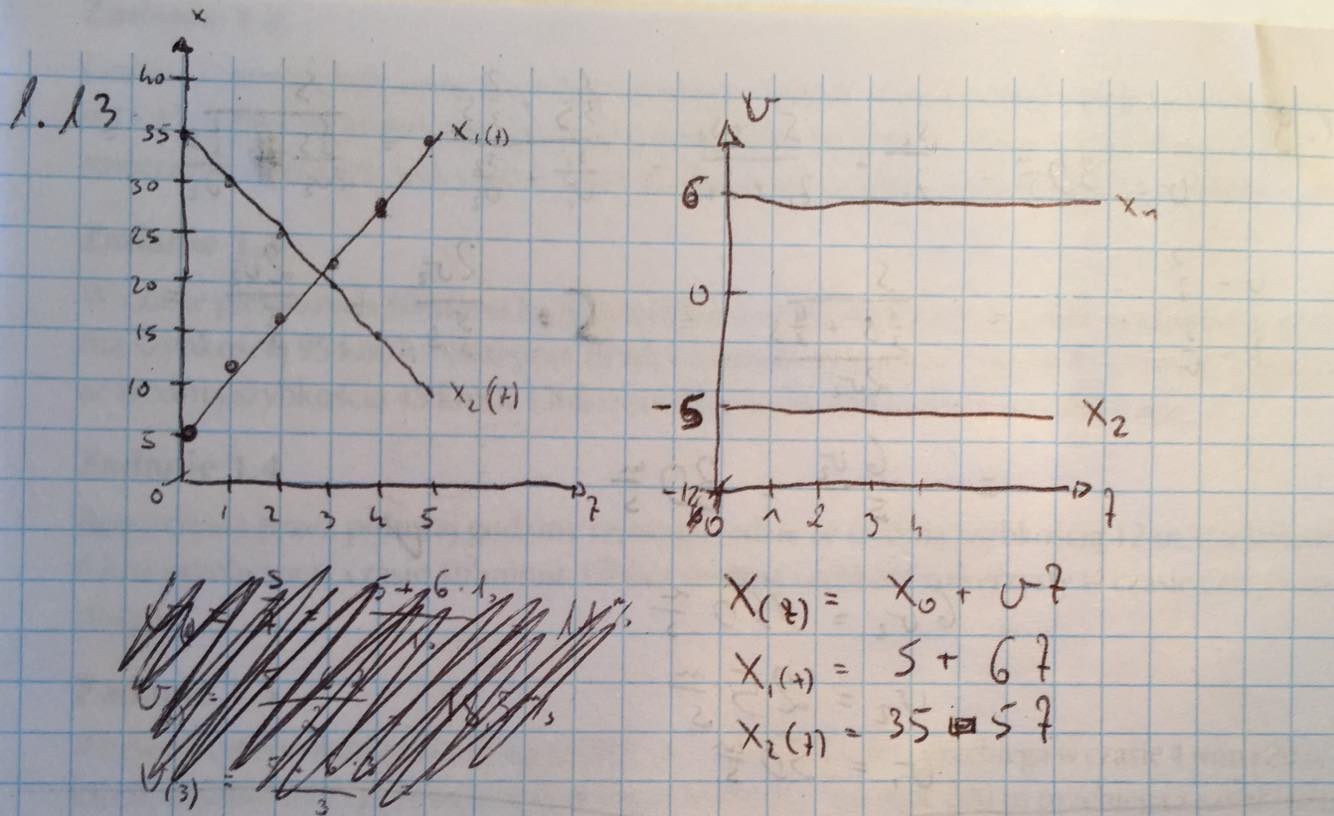 1.13
x
40
35
30
25
20
15
10
5
0
1 2 3 4 5 t
x₁(t)
x₂(t)
v
6
0
-5
-12
0 1 2 3 4 t
x₁
x₂
x(t) = x₀ + vt
x₁(t) = 5 + 6t
x₂(t) = 35 - 5t